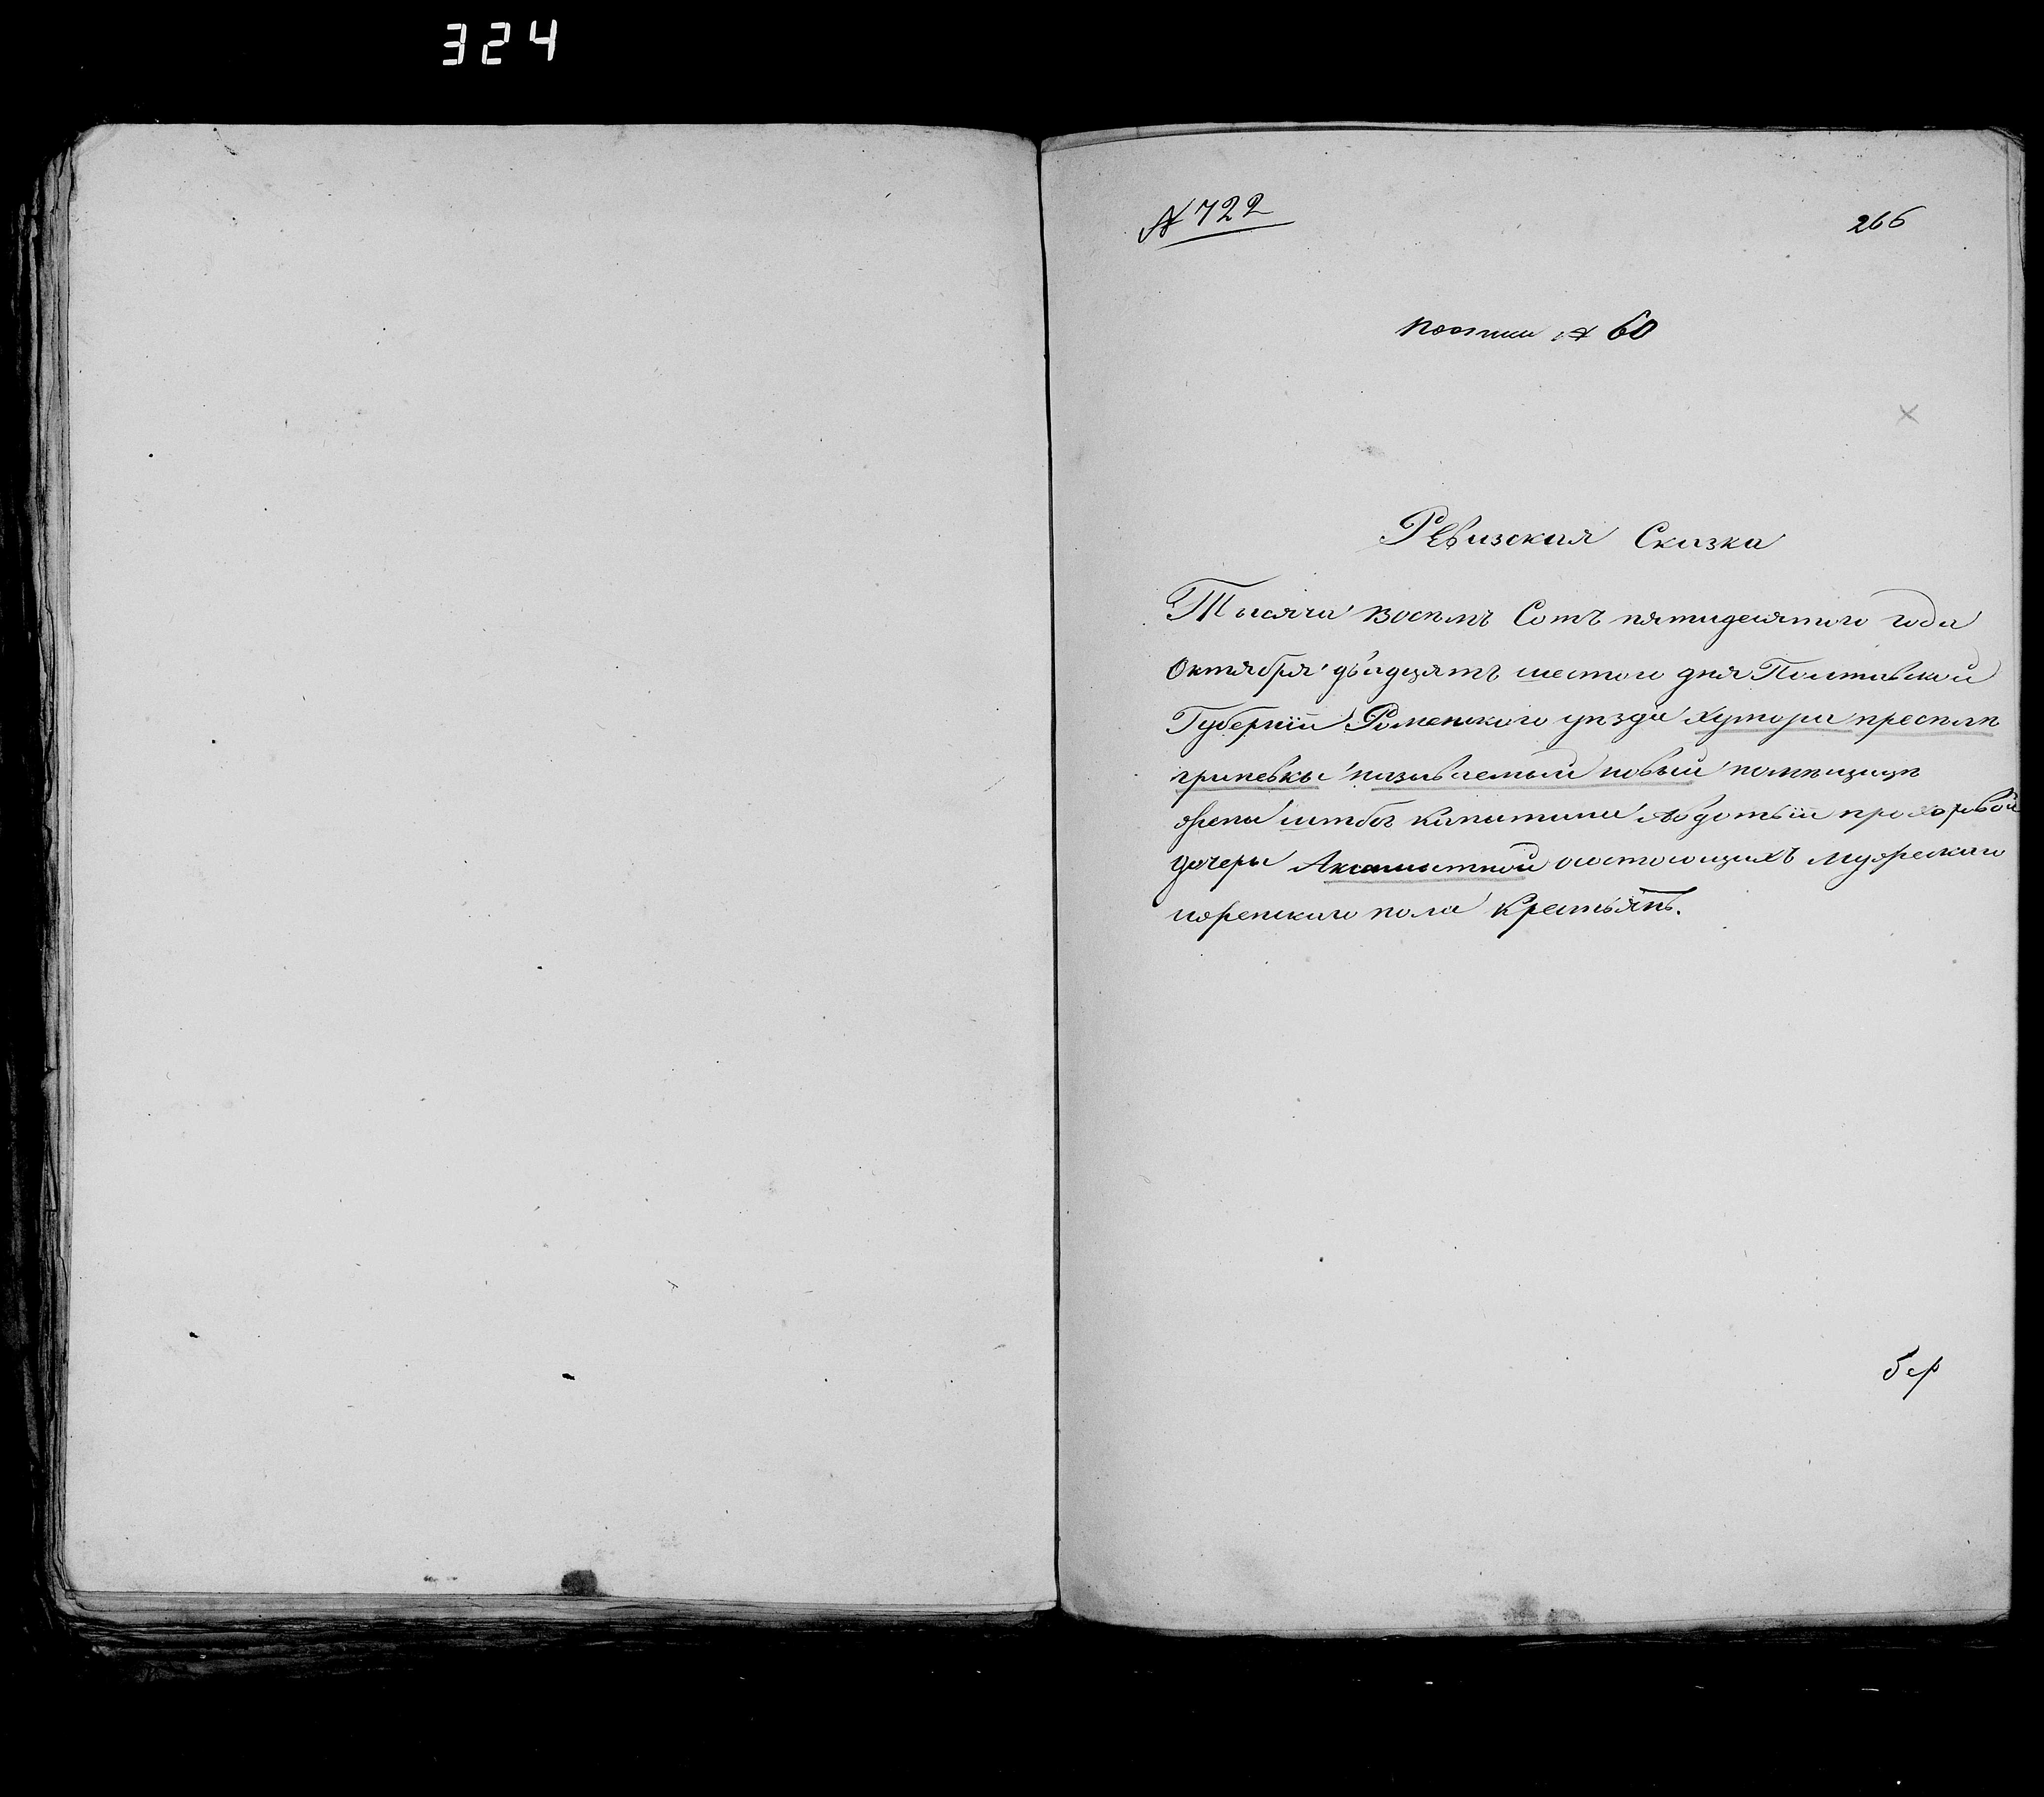 324
№ 722
266
по описи № 60
Ревизская Сказка
Тысяча восемъ Сотъ пятидесятого года
Октября двадцятъ шестого дня Полтавской
Губерніи Роменского уѣзда хутора при селѣ
гриневки называемый новый помѣщицѣ
жены штабсъ капитана Авдотьи прохоровой
дочеры Аксамытной состоющихъ мужеского
иженского пола Крестьянъ.